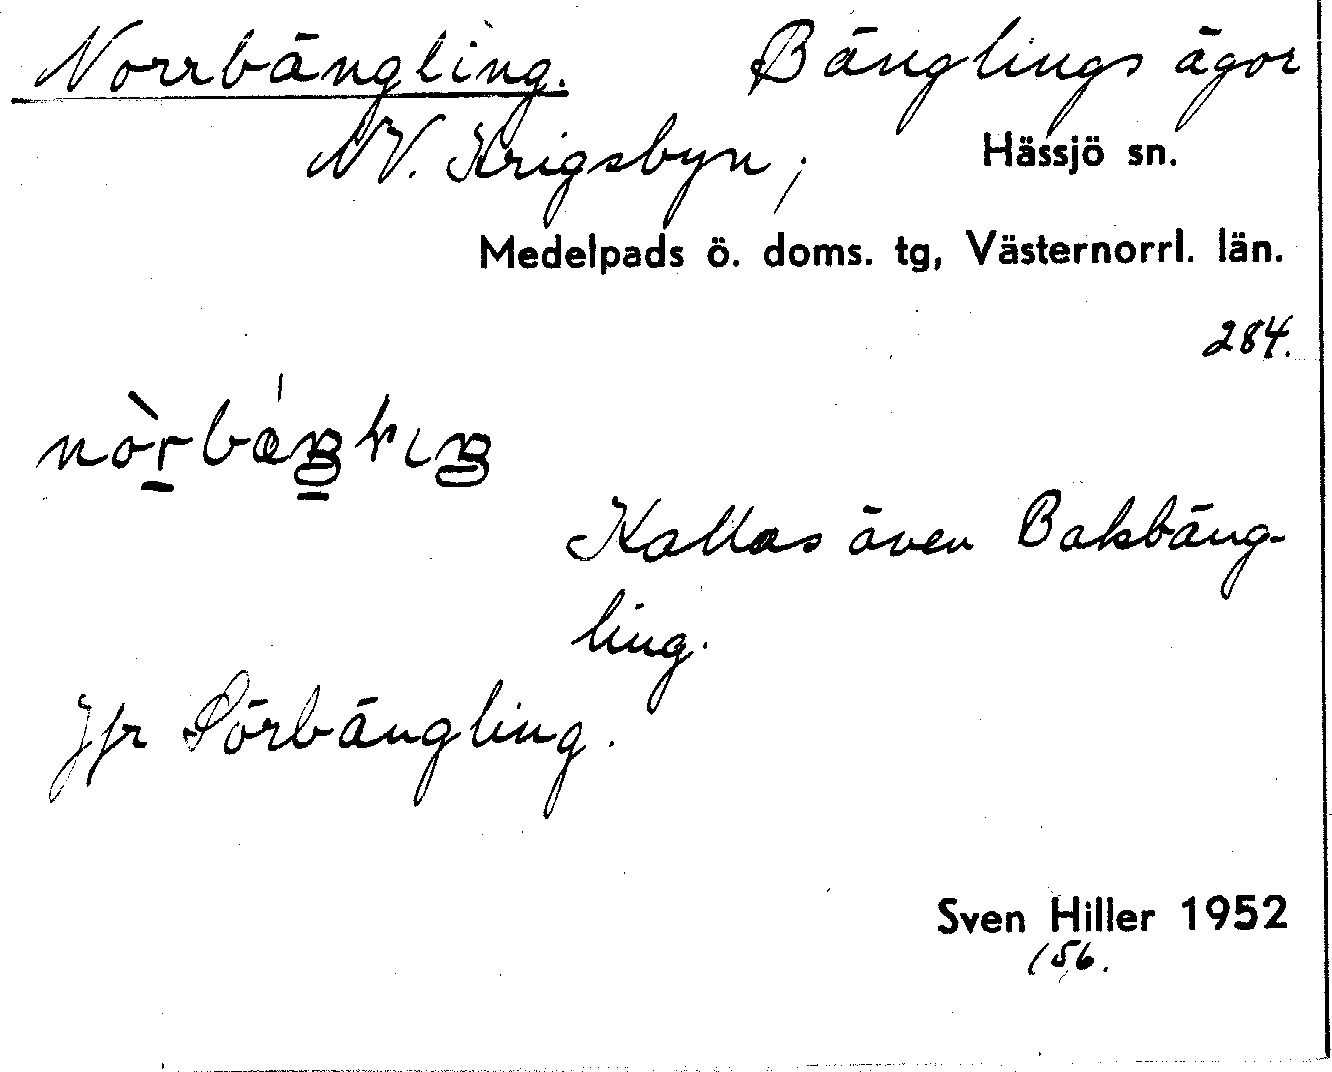 Norrbängling. Bänglings ägor
NV. Krigsbyn, Hässjö sn.
Medelpads ö. doms. tg, Västernorrl. län.
284.
Kallas även Bakbäng-
ling.
Jfr Sörbängling.
Sven Hiller 1952
156.